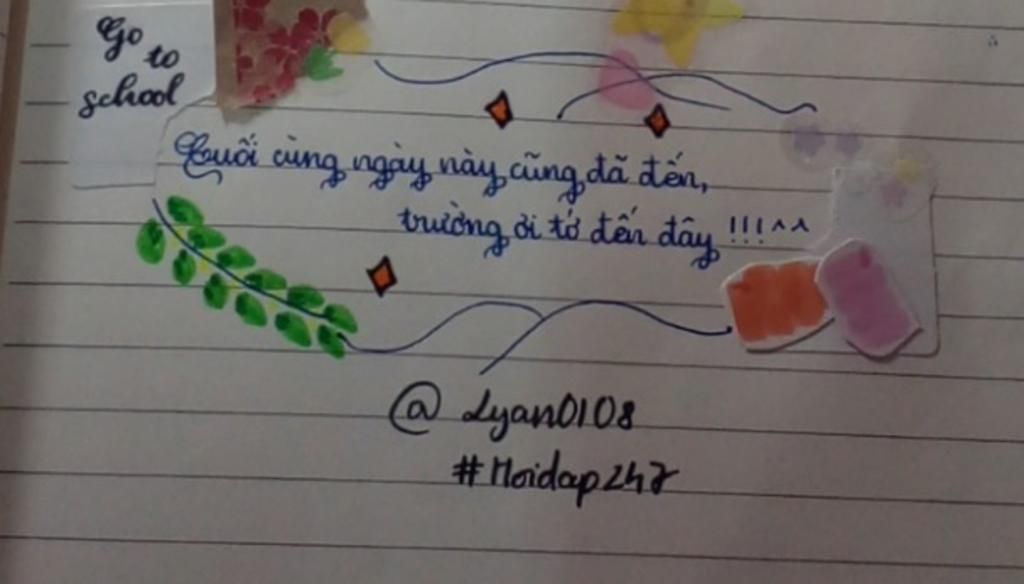 Go
to
school
Cuối cùng ngày này cũng đã đến,
trường ơi tớ đến đây !!!^^
@ Lyan0108
#Hoidap247